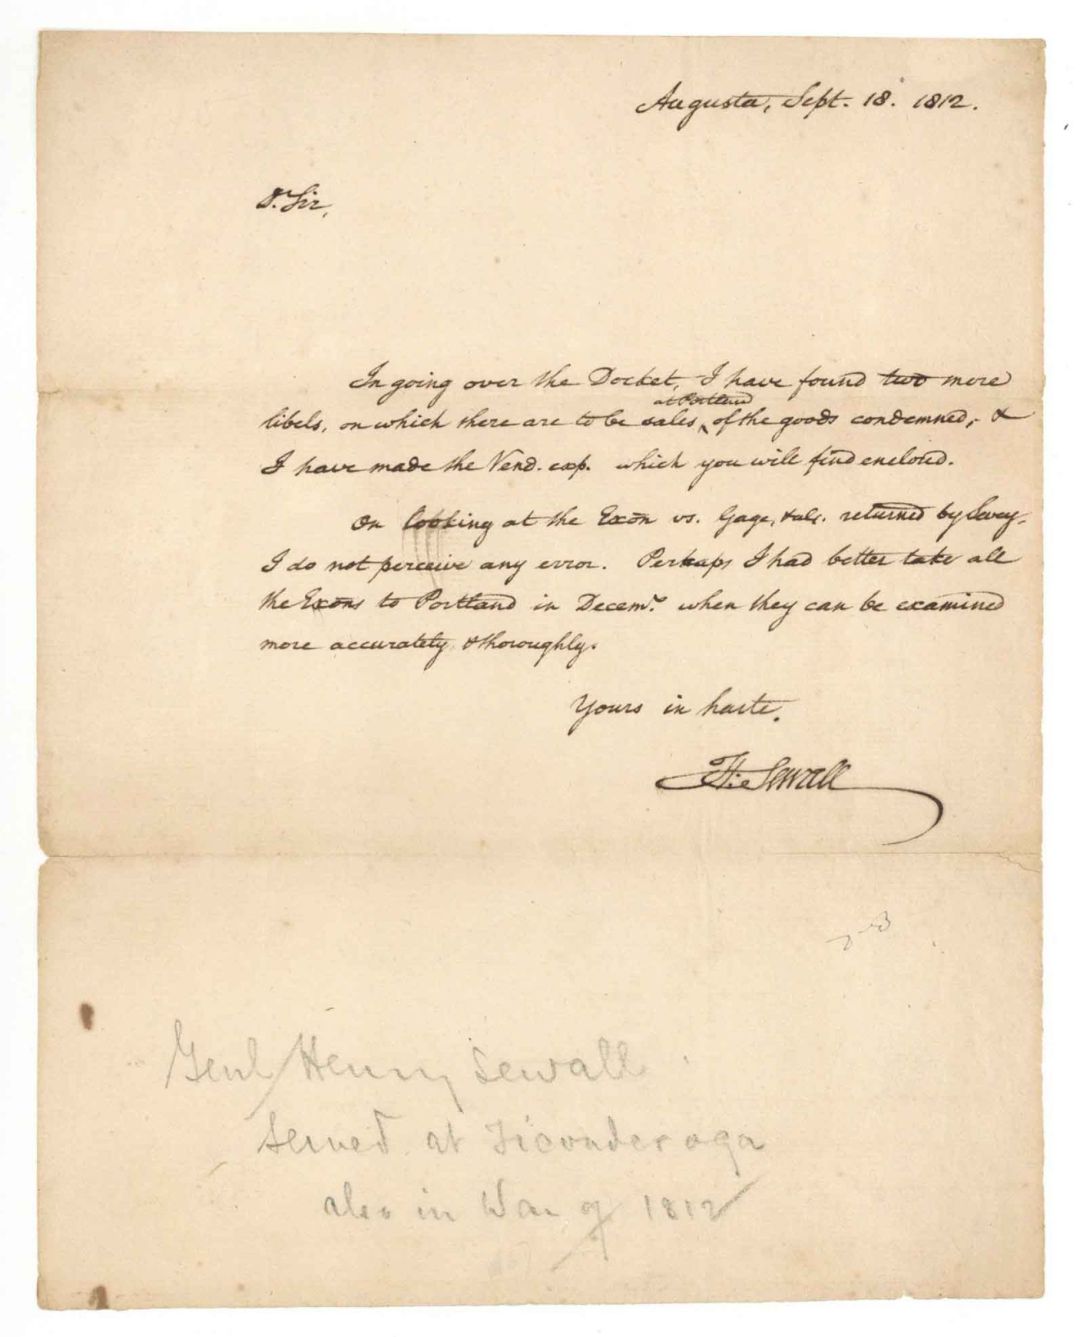 Augusta, Sept. 18. 1812.
D. Sir,
In going over the Docket, I have found two more
at Portland
libels, on which there are to be sales, of the goods condemned, &
I have made the Vend. exp. which you will find enclosed.
On looking at the Exon vs. Gage, & als. returned by Sevey,
I do not perceive any error. Perhaps I had better take all
the Exons to Portland in Decemr. when they can be examined
more accurately & thoroughly.
Yours in haste.
H: Sewall
Genl Henry Sewall
Served at Ticonderoga
also in War of 1812